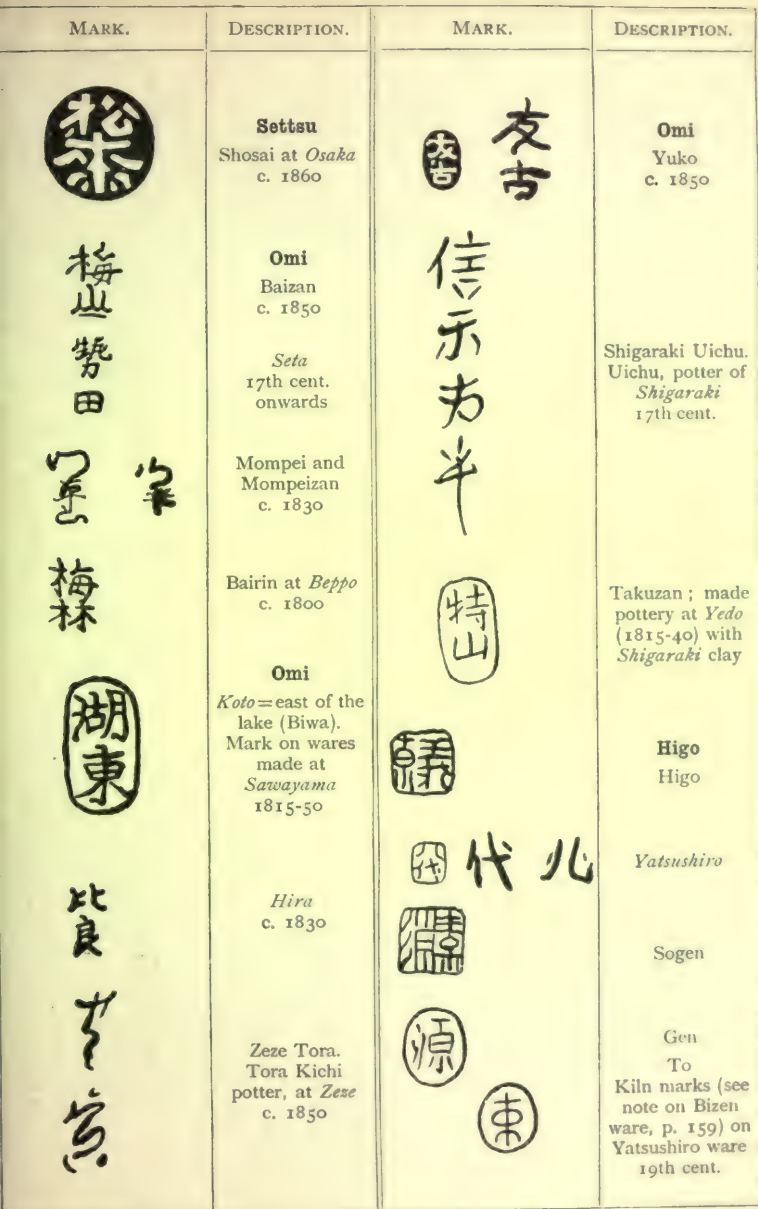 MARK.
DESCRIPTION.
MARK.
DESCRIPTION.
Settsu
Shosai at Osaka
c. 1860
梅山
Omi
Baizan
c. 1850
勢田
Seta
17th cent.
onwards
Mompei and
Mompeizan
c. 1830
梅林
Bairin at Beppo
c. 1800
湖東
Omi
Koto=east of the
lake (Biwa).
Mark on wares
made at
Sawayama
1815-50
比良
Hira
c. 1830
Zeze Tora.
Tora Kichi
potter, at Zeze
c. 1850
友古
友古
Omi
Yuko
c. 1850
信
Shigaraki Uichu.
Uichu, potter of
Shigaraki
17th cent.
特山
Takuzan; made
pottery at Yedo
(1815-40) with
Shigaraki clay
Higo
Higo
代
代
八
Yatsushiro
Sogen
源
Gen
東
To
Kiln marks (see
note on Bizen
ware, p. 159) on
Yatsushiro ware
19th cent.